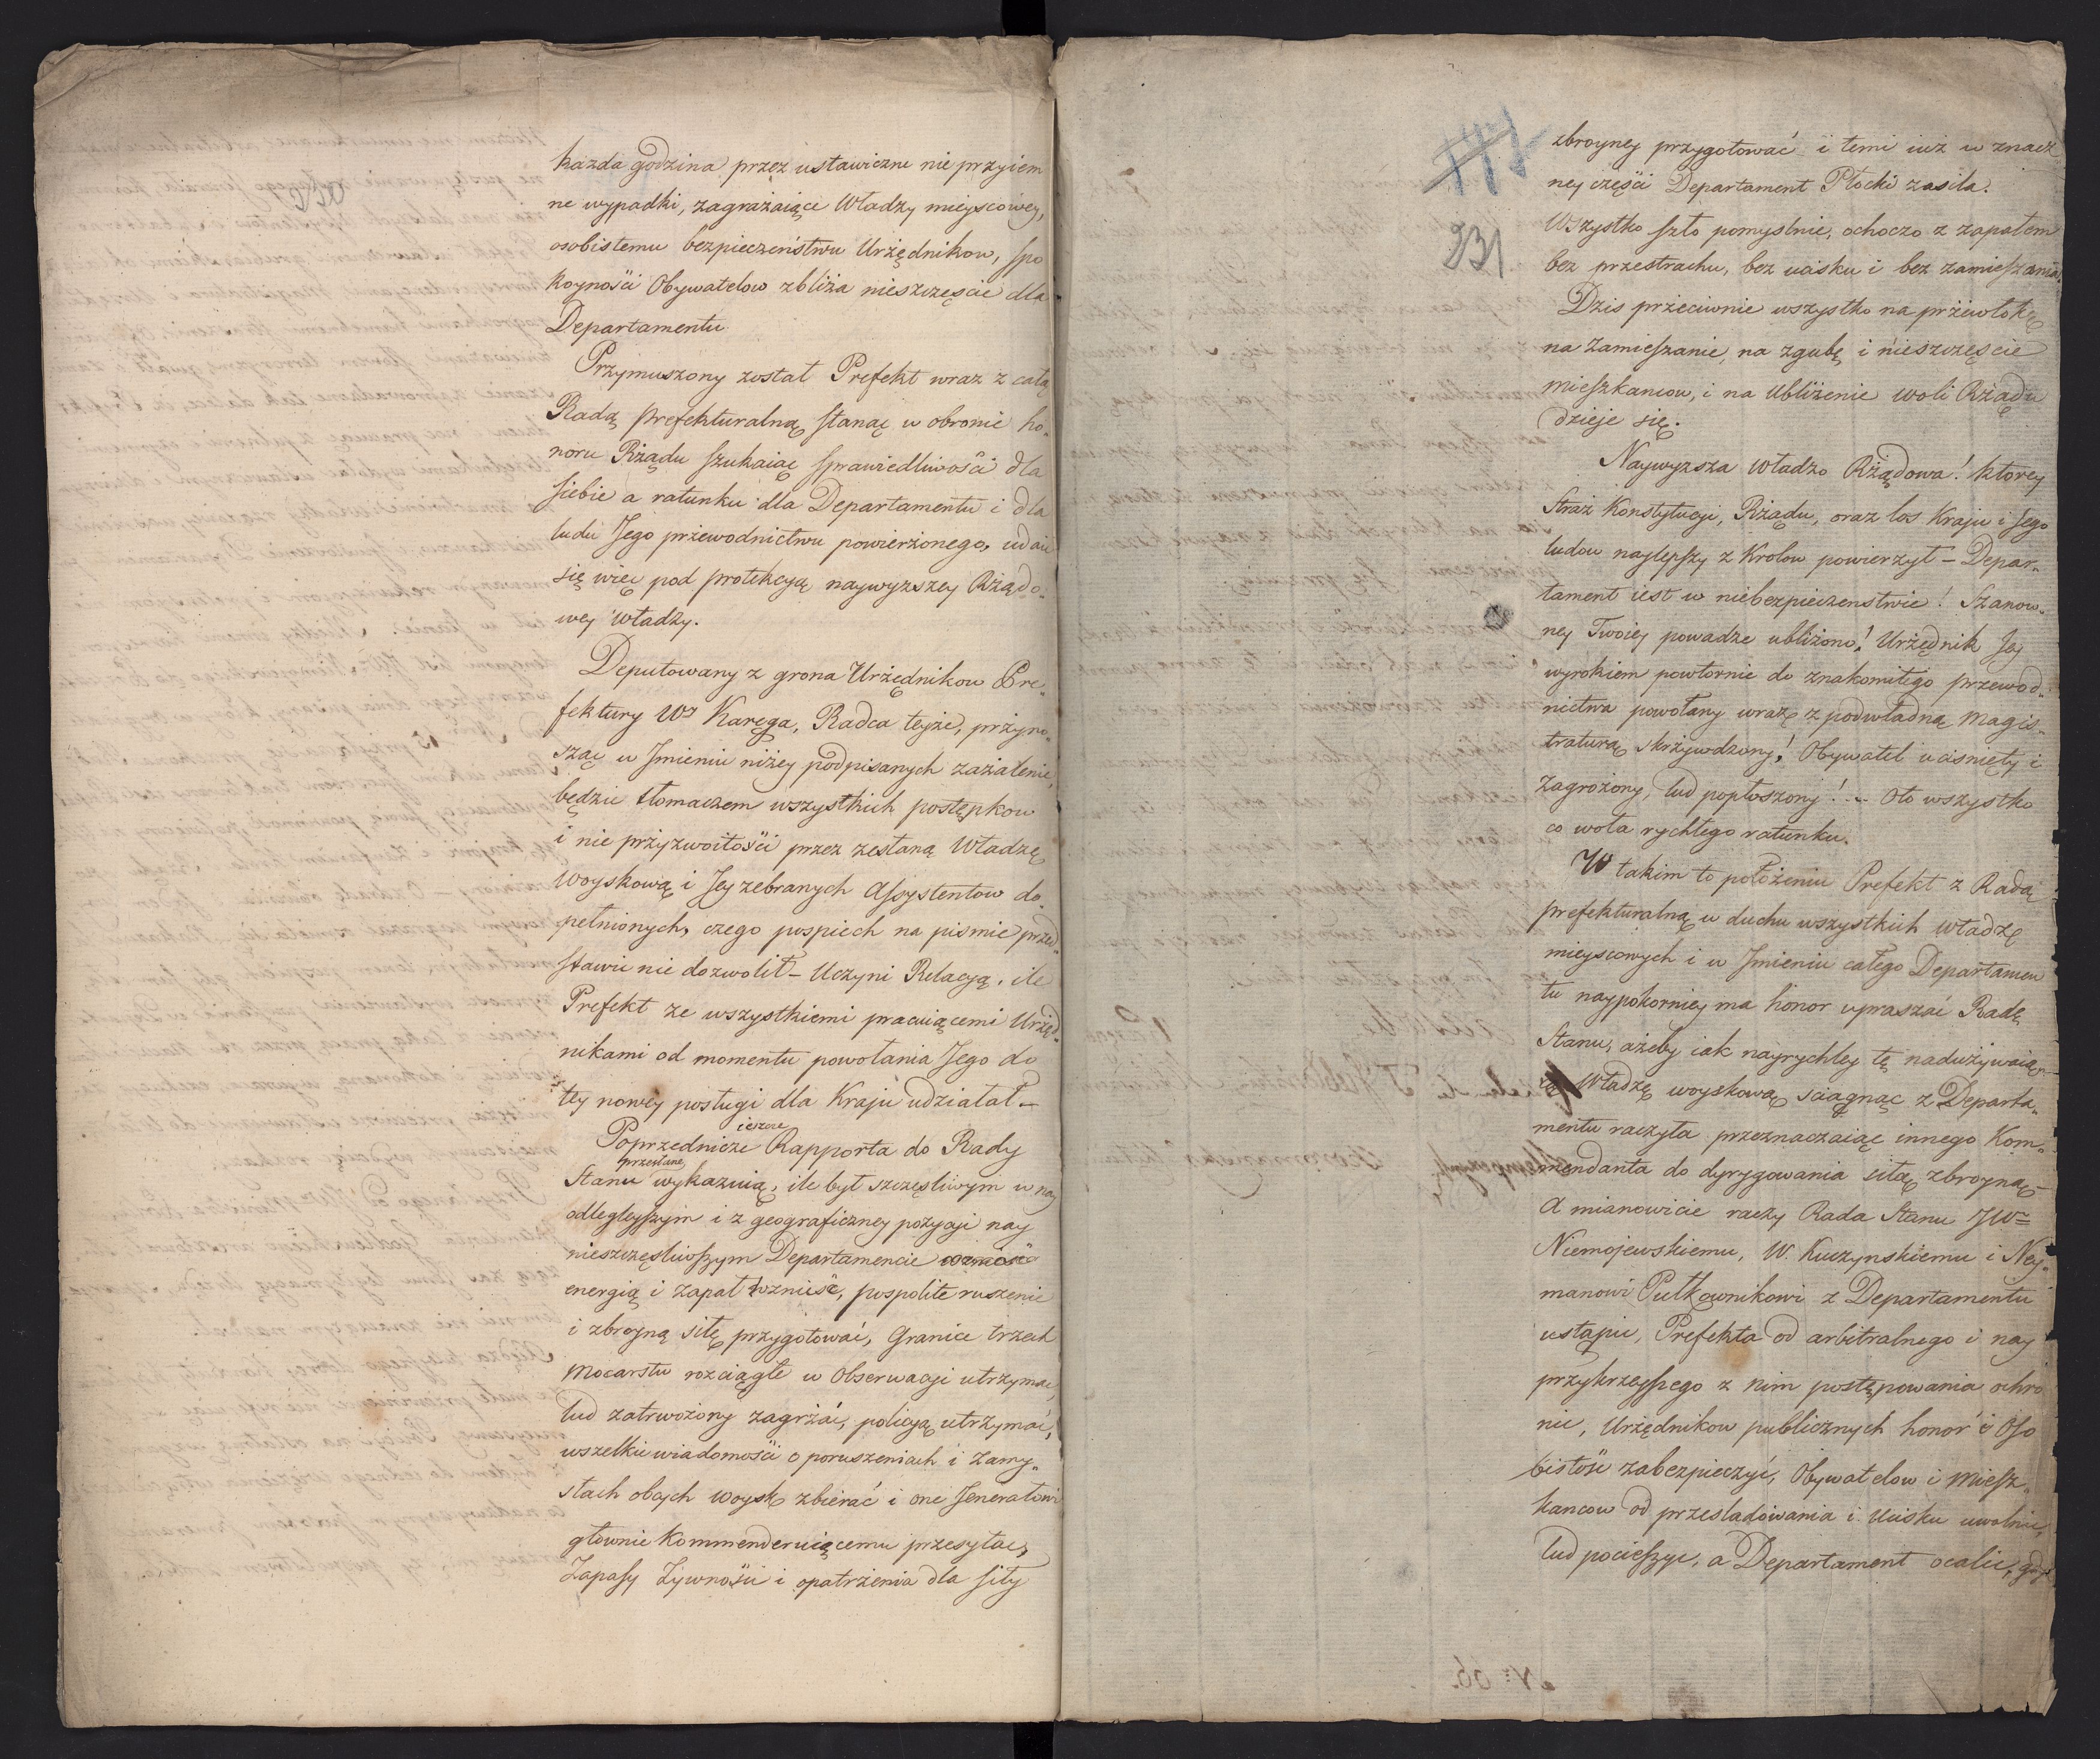 każda godzina przez ustawiczne nie przyiem
ne wypadki, zagrażaiące Władzy mieyscowey,
osobistemu bezpieczeństwu Urzędnikow, spo
koyności Obywatelow zbliża nieszczęscie dla
Departamentu
Przymuszony został Prefekt wraz z całą
Radą Prefekturalną stanąć w obronie ho„
noru Rządu szukaiąc sprawiedliwości dla
siebie a ratunku dla Departamentu i dla
ludu Jego przewodnictwu powierzonego, udaie
się więc pod protekcyą naywyzszey Rządo„
wey władzy.
Deputowany z grona Urzędnikow Pre„
fektury Wy Karęga, Radca teyże, przyno„
sząc w Jmieniu niżey podpisanych zażalenie,
będzie tłomaczem wszystkich postępkow
i nie przyzwoitości przez zesłaną Władzę
Woyskową i Jey zebranych Assystentow do„
pełnionych, czego pospiech na pismie przed„
stawić nie dozwolił – Uczyni Relacyą, ile
Prefekt ze wszystkiemi pracuiącemi Urzęd„
nikami od momentu powołania Jego do
tey nowey posługi dla Kraju udziałał –
Poprzednicze Rapporta do Rady
Stanu przesłane wykazuią, ile był szczęsliwym w nay
odlegleyszym i z geograficzney pozycyi nay
nieszczęsliwszym Departamencie
energią i zapał wzniesć, pospolite ruszenie
i zbroyną siłę przygotować, Granice trzech
Mocarstw rozciągłe w Obserwacyi utrzymać,
lud zatrwożony zagrzać, policyą utrzymać,
wszelkie wiadomości o poruszeniach i zamy„
słach obcych woysk zbierać i one Jenerałowi
głownie Kommenderuiącemu przesyłac,
Zapasy żywności i opatrzenia dla siły
231
zbroyney przygotować i temi iuż w znacz
ney części Departament Płocki zasila.
Wszystko szło pomyslnie, ochoczo z zapałem
bez przestrachu, bez ucisku i bez zamieszania.
Dzis przeciwnie wszystko na przewłokę
na zamieszanie, na zgubę i nieszczęscie
Mieszkancow, i na ubliżenie woli Rządu
dzieje się.
Naywyzsza Władzo Rządowa! ktorey
Straż Konstytucyi, Rządu, oraz los Kraju i Jego
ludow najlepszy z Krolow powierzył – Depar„
tament iest w niebezpieczenstwie! Szanow„
ney Twoiey powadze ubliżono! Urzędnik Jey
wyrokiem powtornie do znakomitego przewod„
nictwa powołany wraz z podwładną Magis„
traturą skrzywdzony! Obywatel ucisnięty i
zagrożony, lud popłoszony! .. Oto wszystko
co woła rychłego ratunku.
W takim to położeniu Prefekt z Radą
prefekturalną w duchu wszystkich władz
mieyscowych i w Jmieniu całego Departamen
tu naypokorniey ma honor upraszać Radę
Stanu, ażeby iak nayrychley tę nadużywaią„
cą Władzę woyskową sciągnąc z Departa„
mentu raczyła przeznaczaiąc innego Kom„
mendanta do dyrygowania siłą zbroyną –
A mianowicie raczy Rada Stanu JW=
Niemojewskiemu, W. Kuczynskiemu i Ney„
manowi Pułkownikowi z Departamentu
ustąpić, Prefekta od arbitralnego i nay
przykrzeyszego z nim postępowania ochro
nić, Urzędnikow publicznych honor i Oso
bistość zabezpieczyć, Obywatelow i Miesz„
kancow od przesladowania i ucisku uwolnić,
lud pocieszyc, a Departament ocalić, gdy